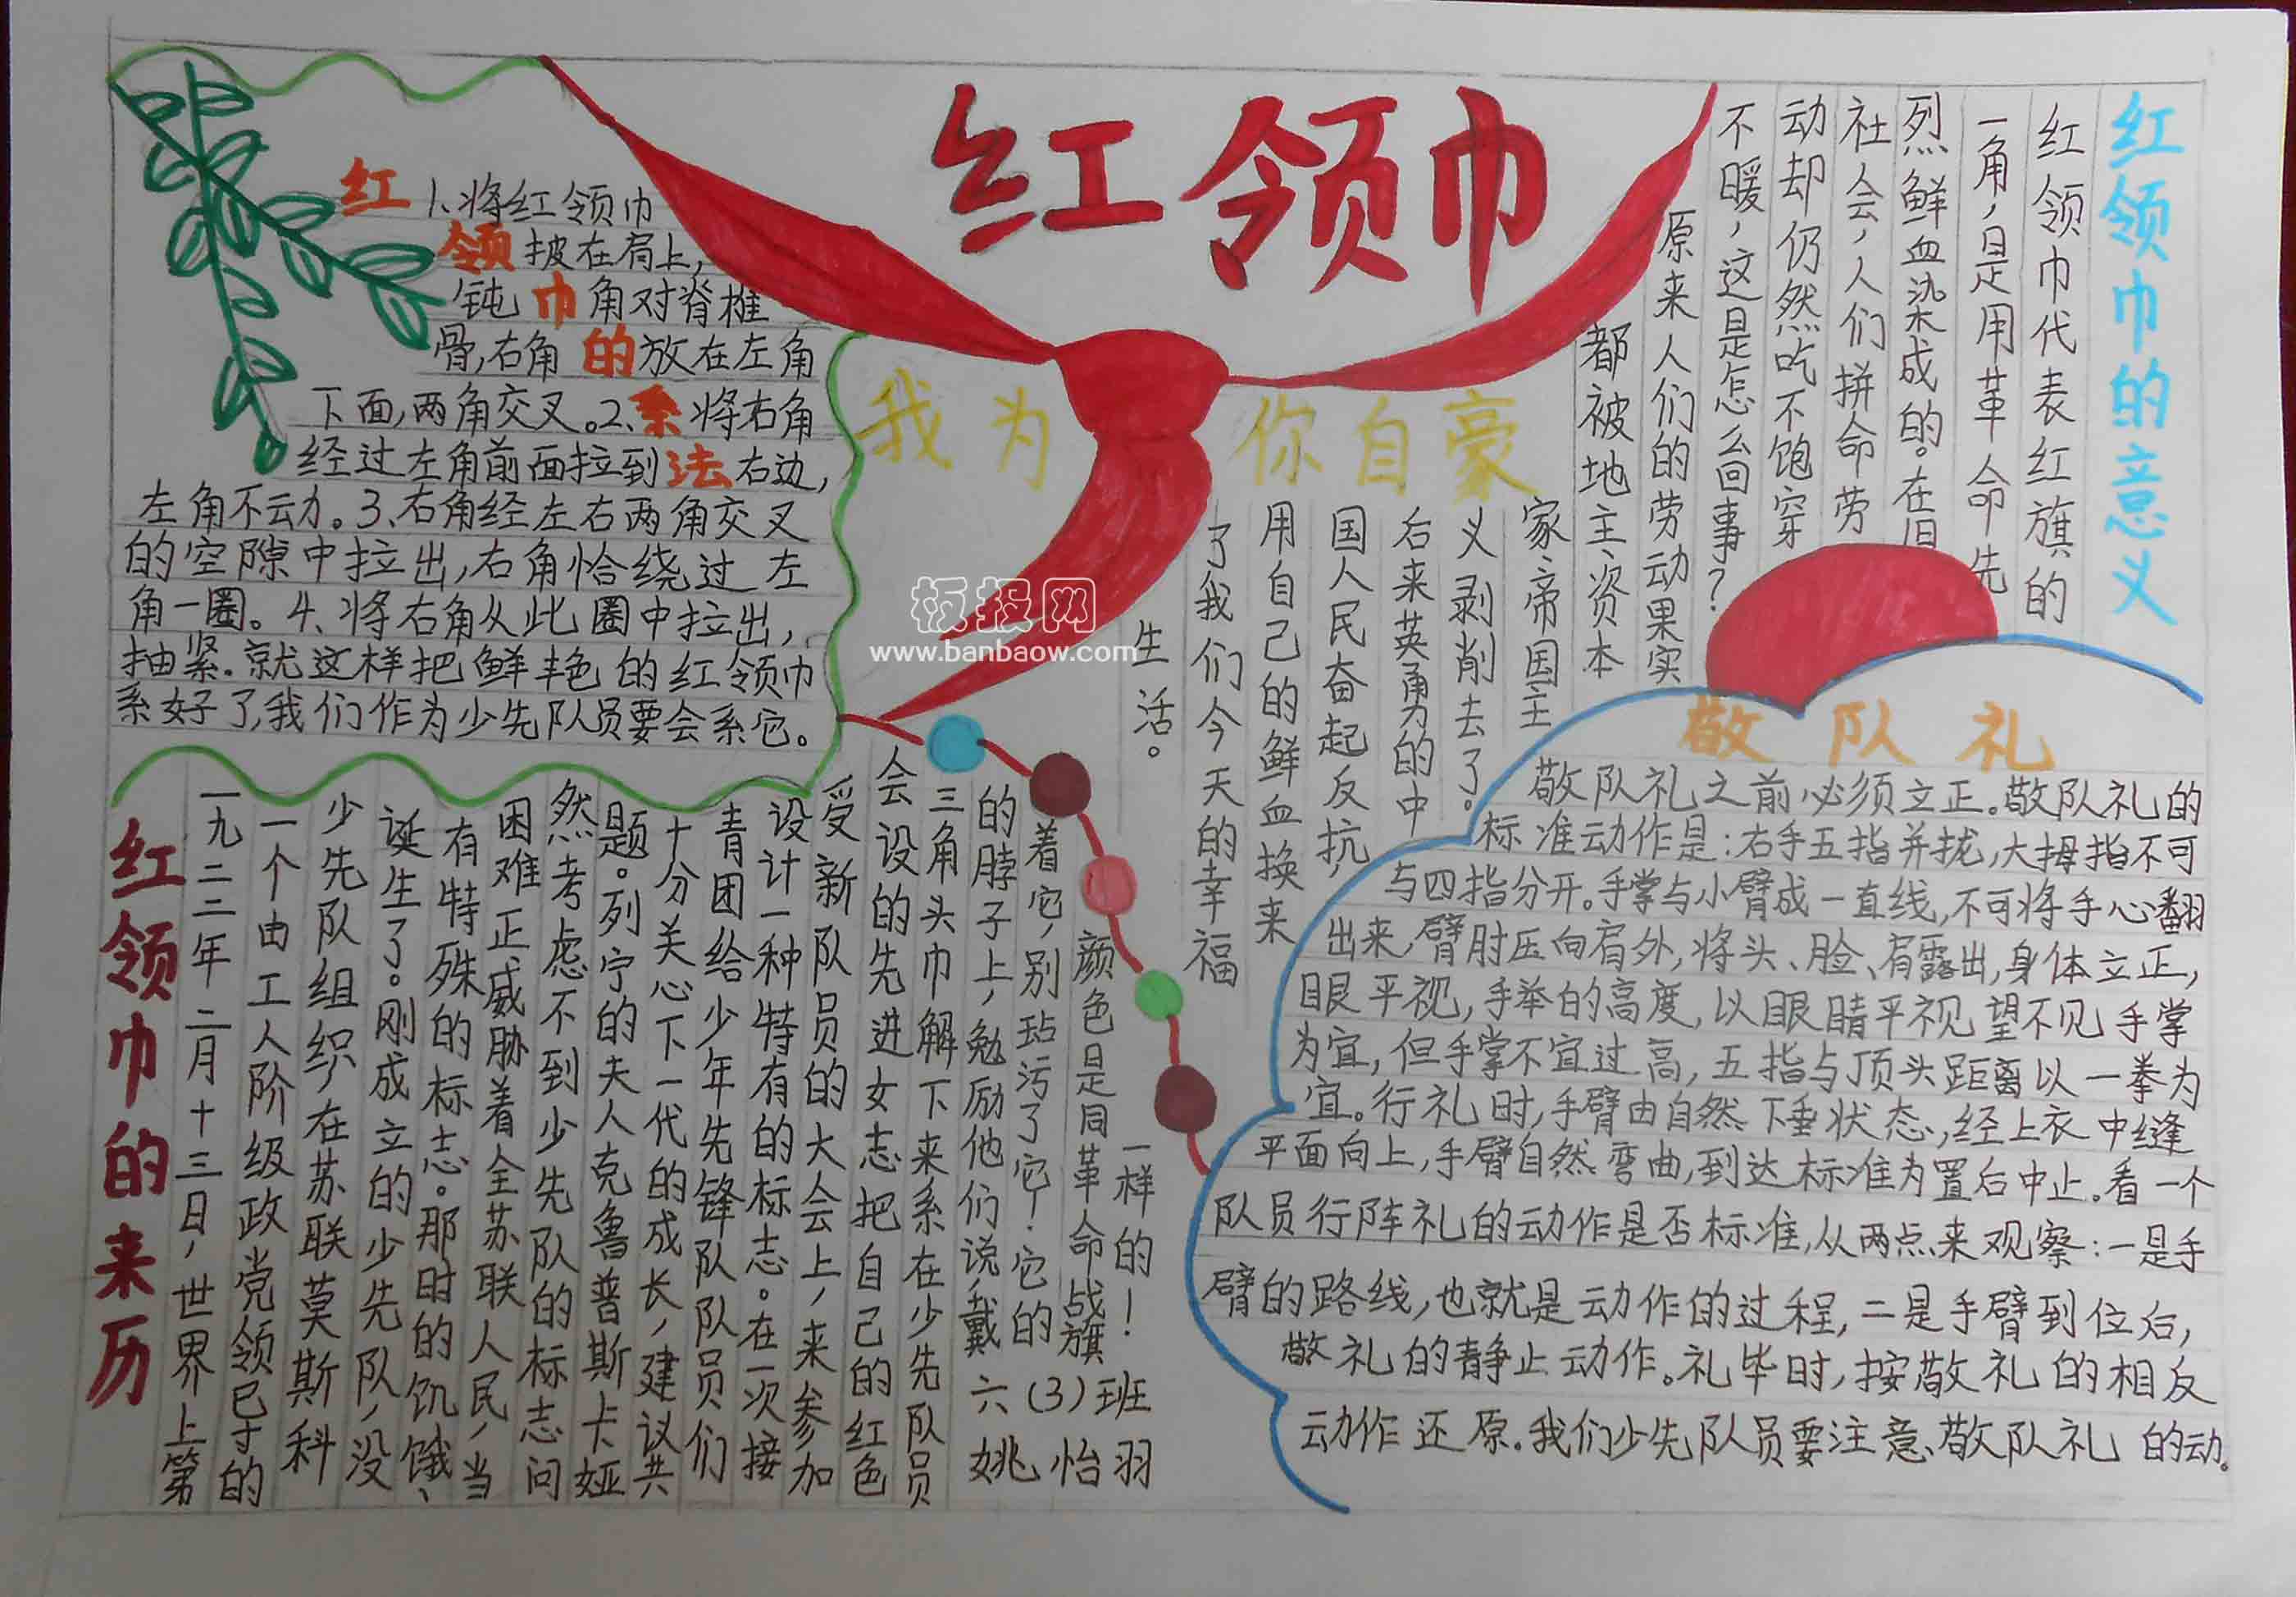 红领巾
我为你自豪
红领巾的系法
1、将红领巾
披在肩上，
钝角对脊椎
骨，右角放在左角
下面，两角交叉。2、将右角
经过左角前面拉到右边，
左角不动。3、右角经左右两角交叉
的空隙中拉出，右角恰绕过左
角一圈。4、将右角从此圈中拉出，
抽紧。就这样把鲜艳的红领巾
系好了，我们作为少先队员要会系它。
红领巾的意义
红领巾代表红旗的
一角，是用革命先
烈鲜血染成的。在旧
社会，人们拼命劳
动却仍然吃不饱穿
不暖，这是怎么回事？
原来人们的劳动果实
都被地主、资本
家、帝国主
义剥削去了。
后来英勇的中
国人民奋起反抗，
用自己的鲜血换来
了我们今天的幸福
生活。
红领巾的来历
一九二二年二月十三日，世界上第
一个由工人阶级政党领导的
少先队组织，在苏联莫斯科
诞生了。刚成立的少先队，没
有特殊的标志。那时的饥饿、
困难正威胁着全苏联人民，当
然考虑不到少先队的标志问
题。列宁的夫人克鲁普斯卡娅
十分关心下一代的成长，建议共
青团给少年先锋队队员们
设计一种特有的标志。在一次接
受新队员的大会上，来参加
会设的先进女志把自己的红色
三角头巾解下来系在少先队员
的脖子上，勉励他们说，戴
着它，别玷污了它！它的
颜色是同革命战旗
一样的！
六（3）班
姚怡羽
敬队礼
敬队礼之前必须立正。敬队礼的
标准动作是：右手五指并拢，大拇指不可
与四指分开。手掌与小臂成一直线，不可将手心翻
出来，臂肘压向肩外，将头、脸、肩露出，身体立正，
眼平视，手举的高度，以眼睛平视望不见手掌
为宜，但手掌不宜过高，五指与顶头距离以一拳为
宜。行礼时，手臂由自然下垂状态，经上衣中缝
平面向上，手臂自然弯曲，到达标准为置后中止。看一个
队员行阵礼的动作是否标准，从两点来观察：一是手
臂的路线，也就是动作的过程，二是手臂到位后，
敬礼的静止动作。礼毕时，按敬礼的相反
动作还原。我们少先队员要注意、敬队礼的动。
板报网
www.banbaow.com